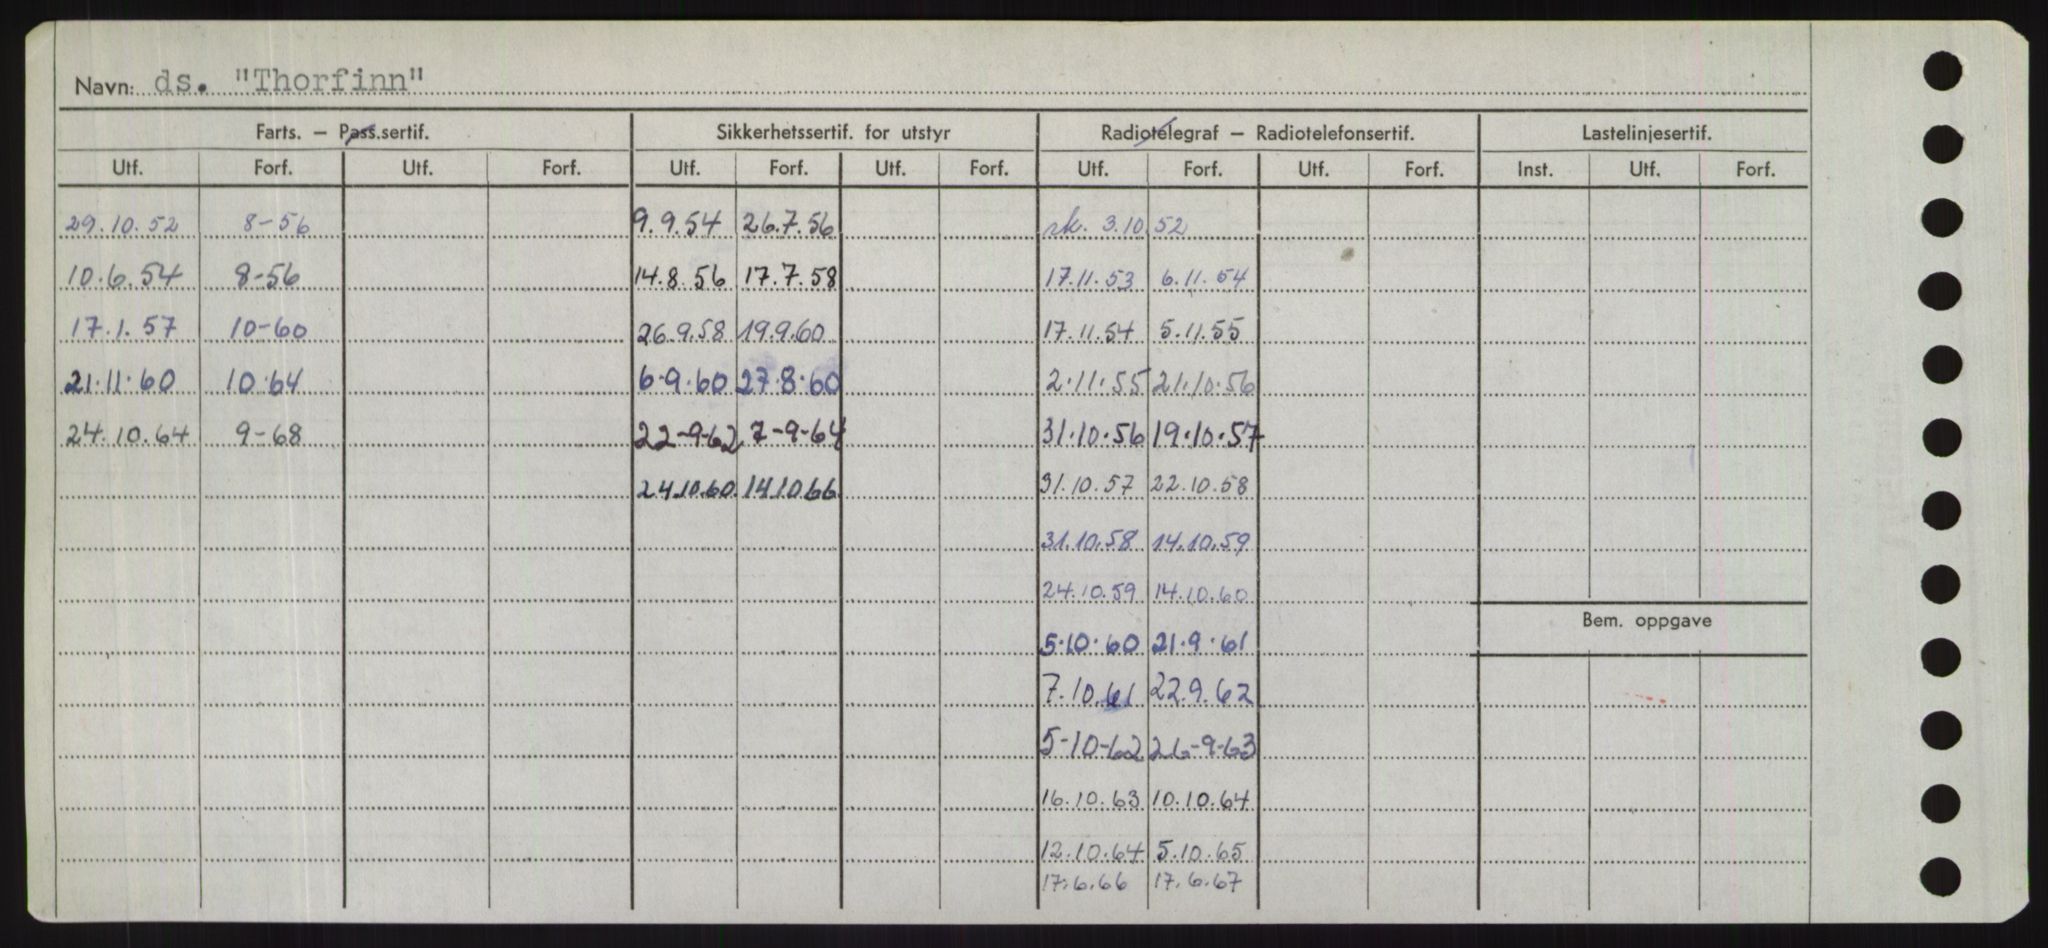 Navn: ds. "Thorfinn"
Farts. – Pass.sertif. Sikkerhetssertif. for utstyr Radiotelegraf – Radiotelefonsertif. Lastelinjesertif.
Utf. Forf. Utf. Forf. Utf. Forf. Utf. Forf. Utf. Forf. Utf. Forf. Inst. Utf. Forf.
29.10.52 8-56 9.9.54 26.7.56 rk. 3.10.52
10.6.54 8-56 14.8.56 17.7.58 17.11.53 6.11.54
17.1.57 10-60 26.9.58 19.9.60 17.11.54 5.11.55
21.11.60 10.64 6.9.60 27.8.60 2.11.55 21.10.56
24.10.64 9-68 22-9-62 7-9-64 31.10.56 19.10.57
24.10.60. 14.10.66 31.10.57 22.10.58
31.10.58 14.10.59
24.10.59 14.10.60
Bem. oppgave
5.10.60 21.9.61
7.10.61 22.9.62
5-10-62 26-9-63
16.10.63 10.10.64
12.10.64 5.10.65
17.6.66 17.6.67